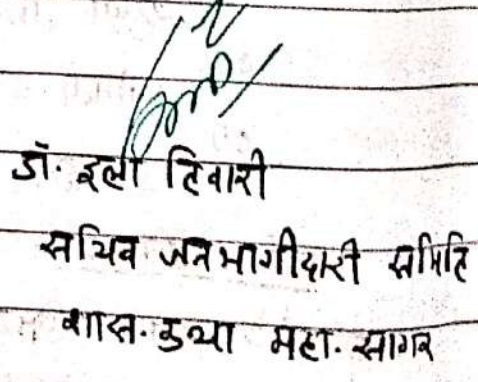 डॉ. इला तिवारी
सचिव जनभागीदारी समिति
शास. कन्या महा. सागर